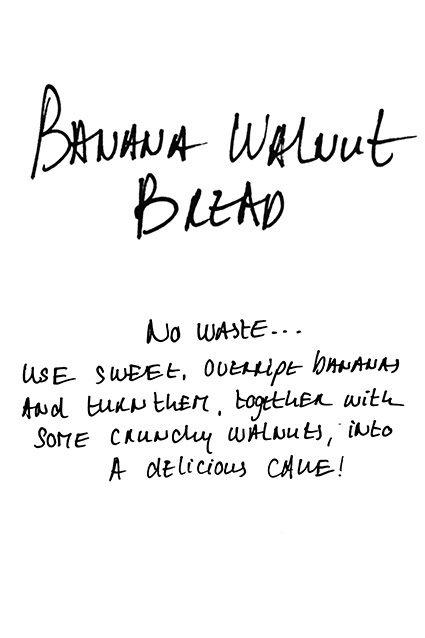 BANANA WALNUT
BREAD
NO WASTE...
USE SWEET, OVERRIPE BANANAS
AND TURN THEM, together with
SOME CRUNCHY WALNUTS, iNTO
A dELicious CAKE!